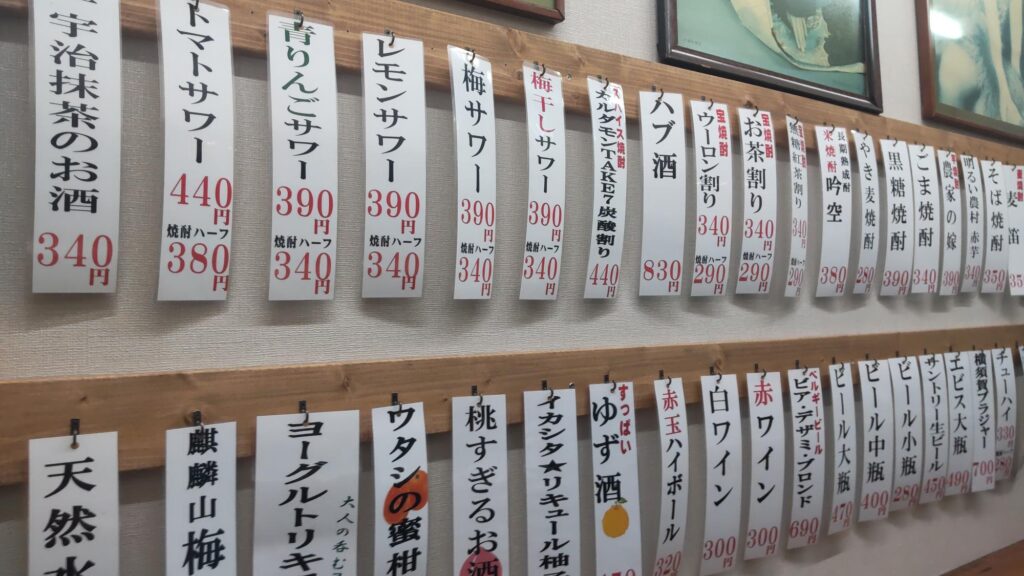 宇治抹茶のお酒
340円
トマトサワー
440円
焼酎ハーフ
380円
青りんごサワー
390円
焼酎ハーフ
340円
レモンサワー
390円
焼酎ハーフ
340円
梅サワー
390円
焼酎ハーフ
340円
梅干しサワー
390円
焼酎ハーフ
340円
スパイス焼酎
カルダモンTAKE7炭酸割り
440円
ハブ酒
830円
宝焼酎
ウーロン割り
340円
焼酎ハーフ
290円
宝焼酎
お茶割り
340円
焼酎ハーフ
290円
紅茶割り
340円
290円
長期熟成酎
米焼酎
吟空
380円
麦焼酎
280円
黒糖焼酎
390円
ごま焼酎
340円
農家の嫁
390円
明るい農村 赤芋
340円
そば焼酎
350円
麦笛
天然水
麒麟山梅
ヨーグルトリキ
大人の呑む
ウタシの蜜柑
桃すぎるお酒
イカシタ★リキュール柚子
すっぱい
ゆず酒
赤玉ハイボール
320円
白ワイン
300円
赤ワイン
300円
ベルギービール
ビア・デザミ・ブロンド
690円
ビール大瓶
470円
ビール中瓶
400円
ビール小瓶
280円
サントリー生ビール
450円
エビス大瓶
490円
横須賀ブラジャー
700円
チューハイ
330円
280円